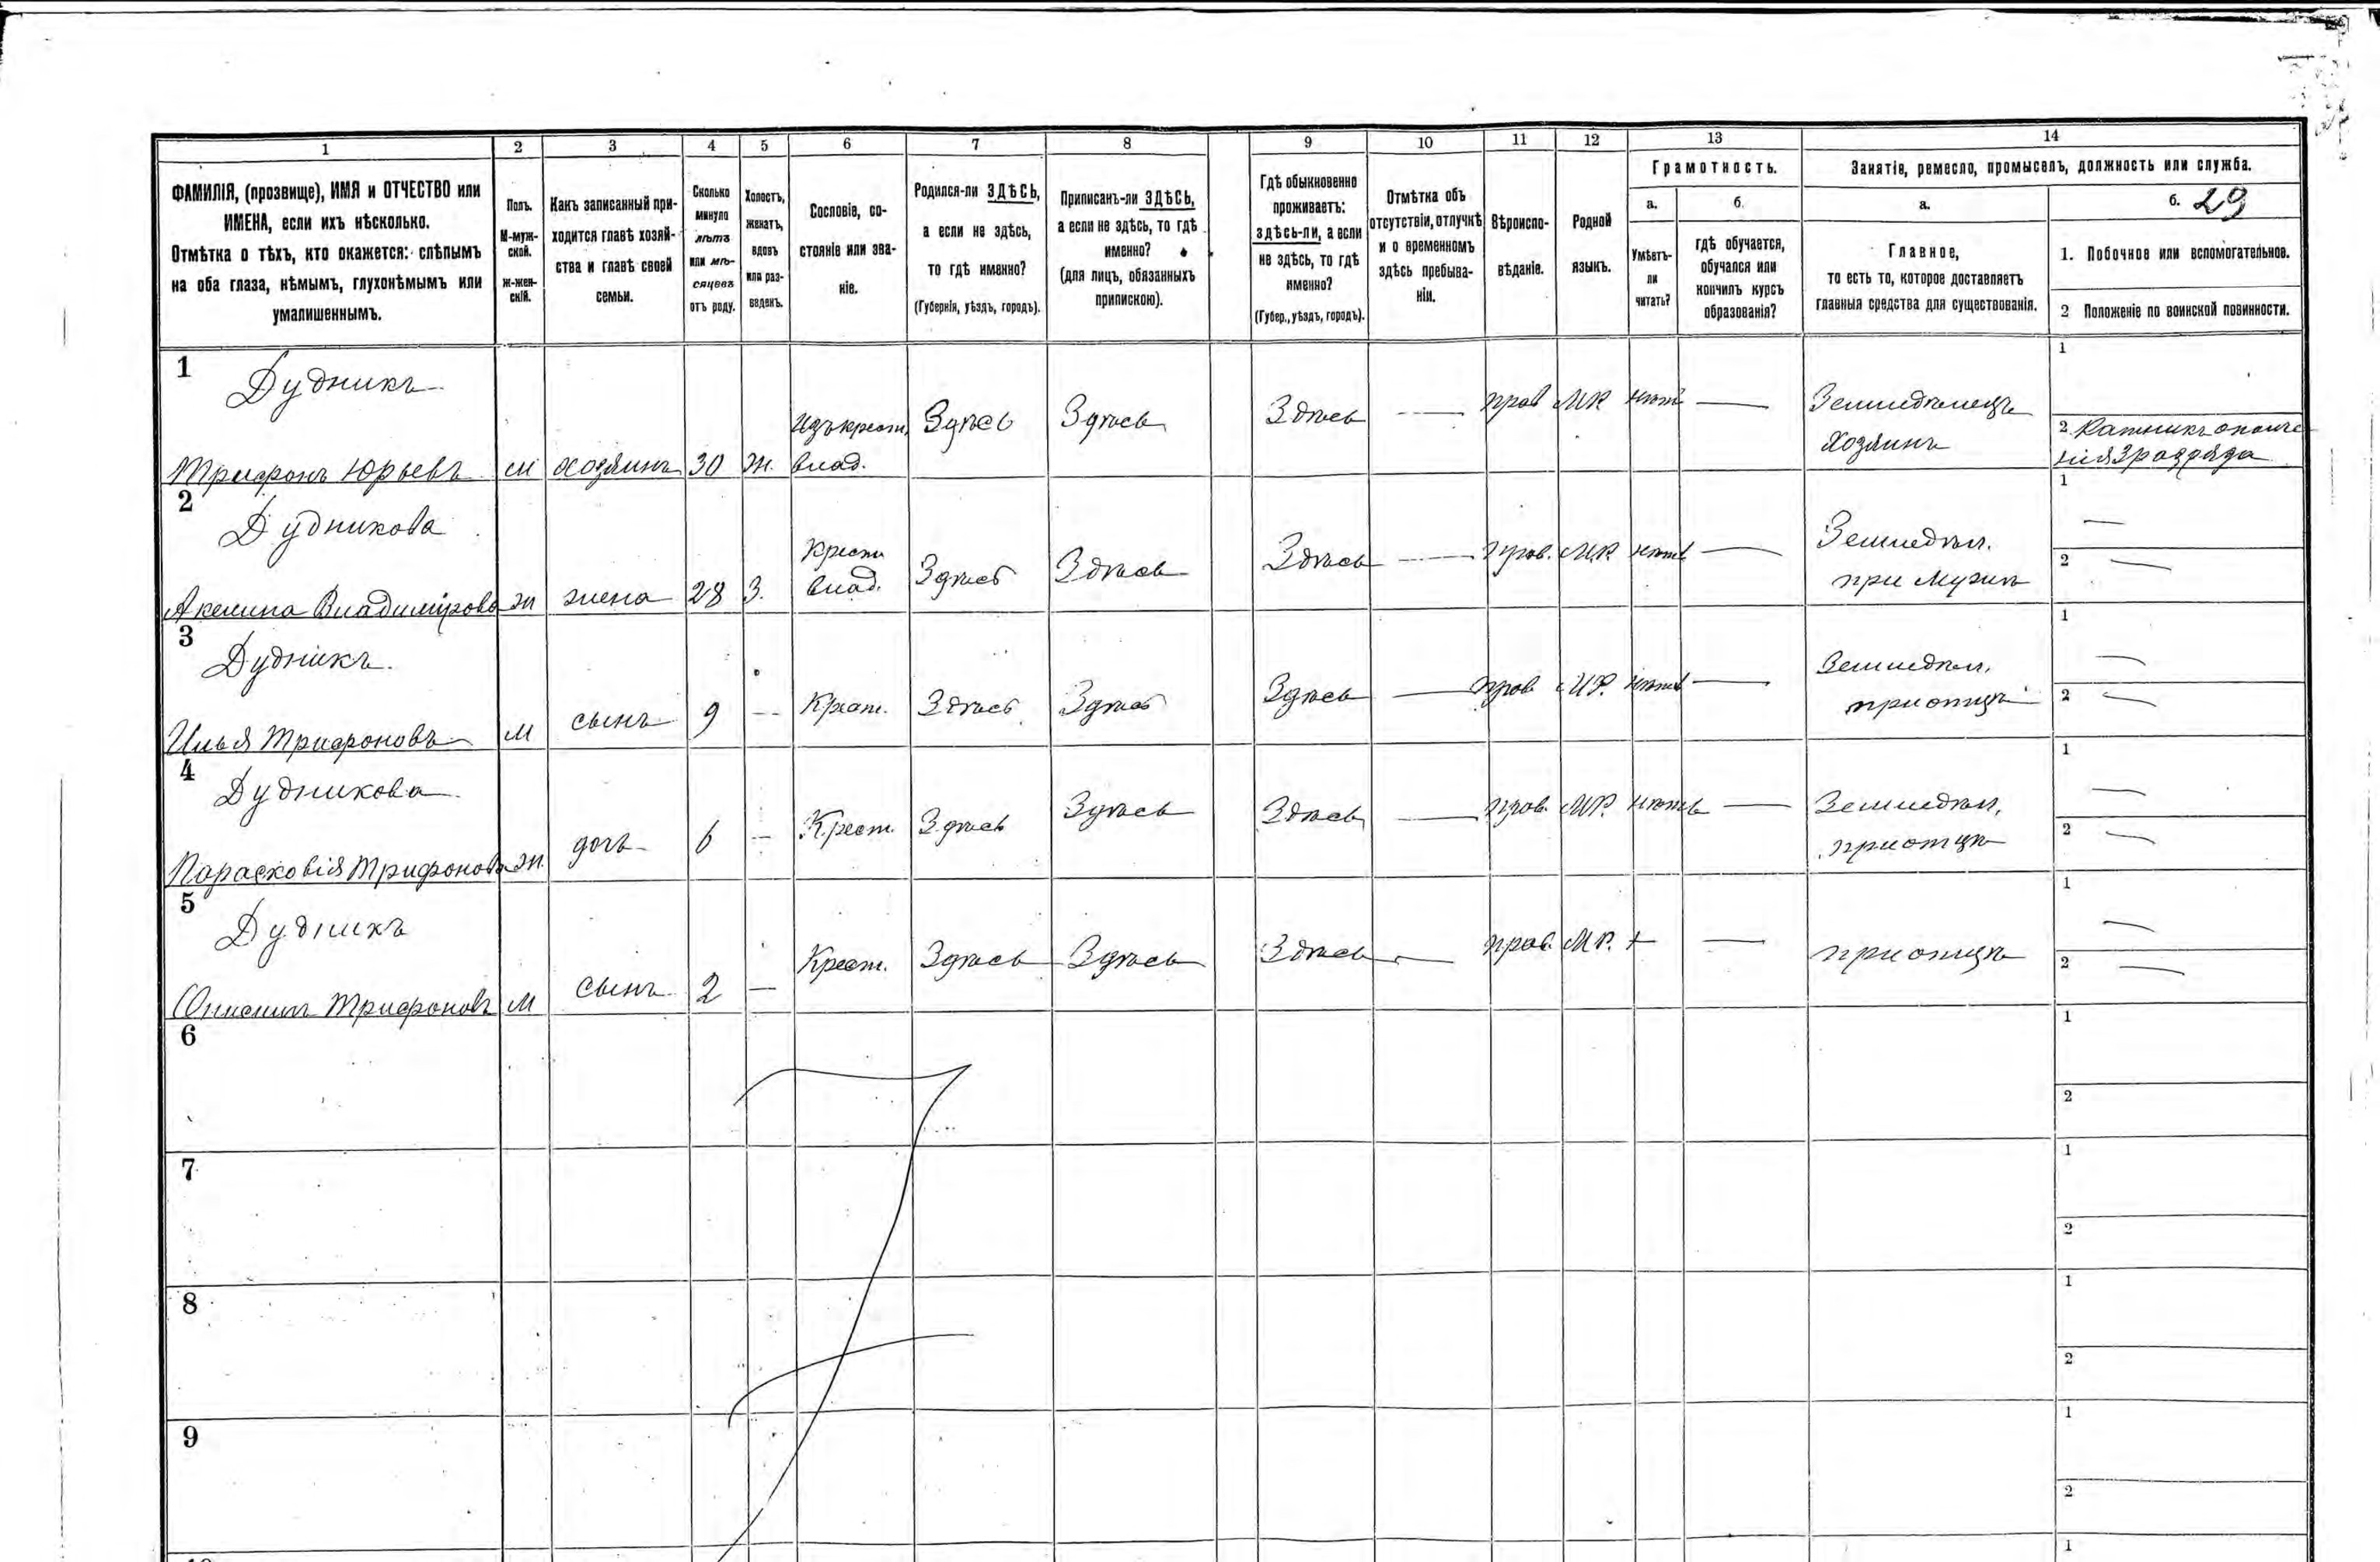 1 2 3 4 5 6 7 8 9 10 11 12 13 14
ФАМИЛІЯ, (прозвище), ИМЯ и ОТЧЕСТВО или
ИМЕНА, если ихъ нѣсколько.
Отмѣтка о тѣхъ, кто окажется: слѣпымъ
на оба глаза, нѣмымъ, глухонѣмымъ или
умалишеннымъ.
Полъ.
М-муж-
ской.
Ж-жен-
скій.
Какъ записанный при-
ходится главѣ хозяй-
ства и главѣ своей
семьи.
Сколько
минуло
лѣтъ
или мѣ-
сяцевъ
отъ роду.
Холостъ,
женатъ,
вдовъ
или раз-
веденъ.
Сословіе, со-
стояніе или зва-
ніе.
Родился-ли ЗДѢСЬ,
а если не здѣсь,
то гдѣ именно?
(Губернія, уѣздъ, городъ).
Приписанъ-ли ЗДѢСЬ,
а если не здѣсь, то гдѣ
именно?
(для лицъ, обязанныхъ
припискою).
Гдѣ обыкновенно
проживаетъ:
здѣсь-ли, а если
не здѣсь, то гдѣ
именно?
(Губер., уѣздъ, городъ).
Отмѣтка объ
отсутствіи, отлучкѣ
и о временномъ
здѣсь пребыва-
ніи.
Вѣроиспо-
вѣданіе.
Родной
языкъ.
Грамотность.
а.
Умѣетъ-
ли
читать?
б.
гдѣ обучается,
обучался или
кончилъ курсъ
образованія?
Занятія, ремесло, промыселъ, должность или служба.
а.
Главное,
то есть то, которое доставляетъ
главныя средства для существованія.
б. 29
1. Побочное или вспомогательное.
2 Положеніе по воинской повинности.
1
Дудникъ
Трифонъ Юрьевъ м хозяинъ 30 ж.
изъ крест.
влад.
Здѣсь Здѣсь Здѣсь — прав МР нѣтъ —
Земледѣлецъ
Хозяинъ
1
2 Ратникъ ополче
нія 2 разряда
2
Дудникова
Акелина Владимірова ж жена 28 З.
крест
влад.
Здѣсь Здѣсь Здѣсь — прав. МР. нѣтъ —
Земледѣл.
при мужѣ
1 —
2 —
3
Дудникъ
Илья Трифоновъ м сынъ 9 — Крест. Здѣсь Здѣсь Здѣсь — прав МР. нѣтъ —
Земледѣл.
при отцѣ
1 —
2 —
4
Дудникова
Парасковія Трифонова ж. дочь 6 — Крест. Здѣсь Здѣсь Здѣсь — прав. МР. нѣтъ —
Земледѣл.
при отцѣ
1 —
2 —
5
Дудникъ
Онисимъ Трифоновъ м сынъ 2 — Крест. Здѣсь Здѣсь Здѣсь — прав. МР. + —
при отцѣ
1 —
2 —
6
1
2
7
1
2
8
1
2
9
1
2
1